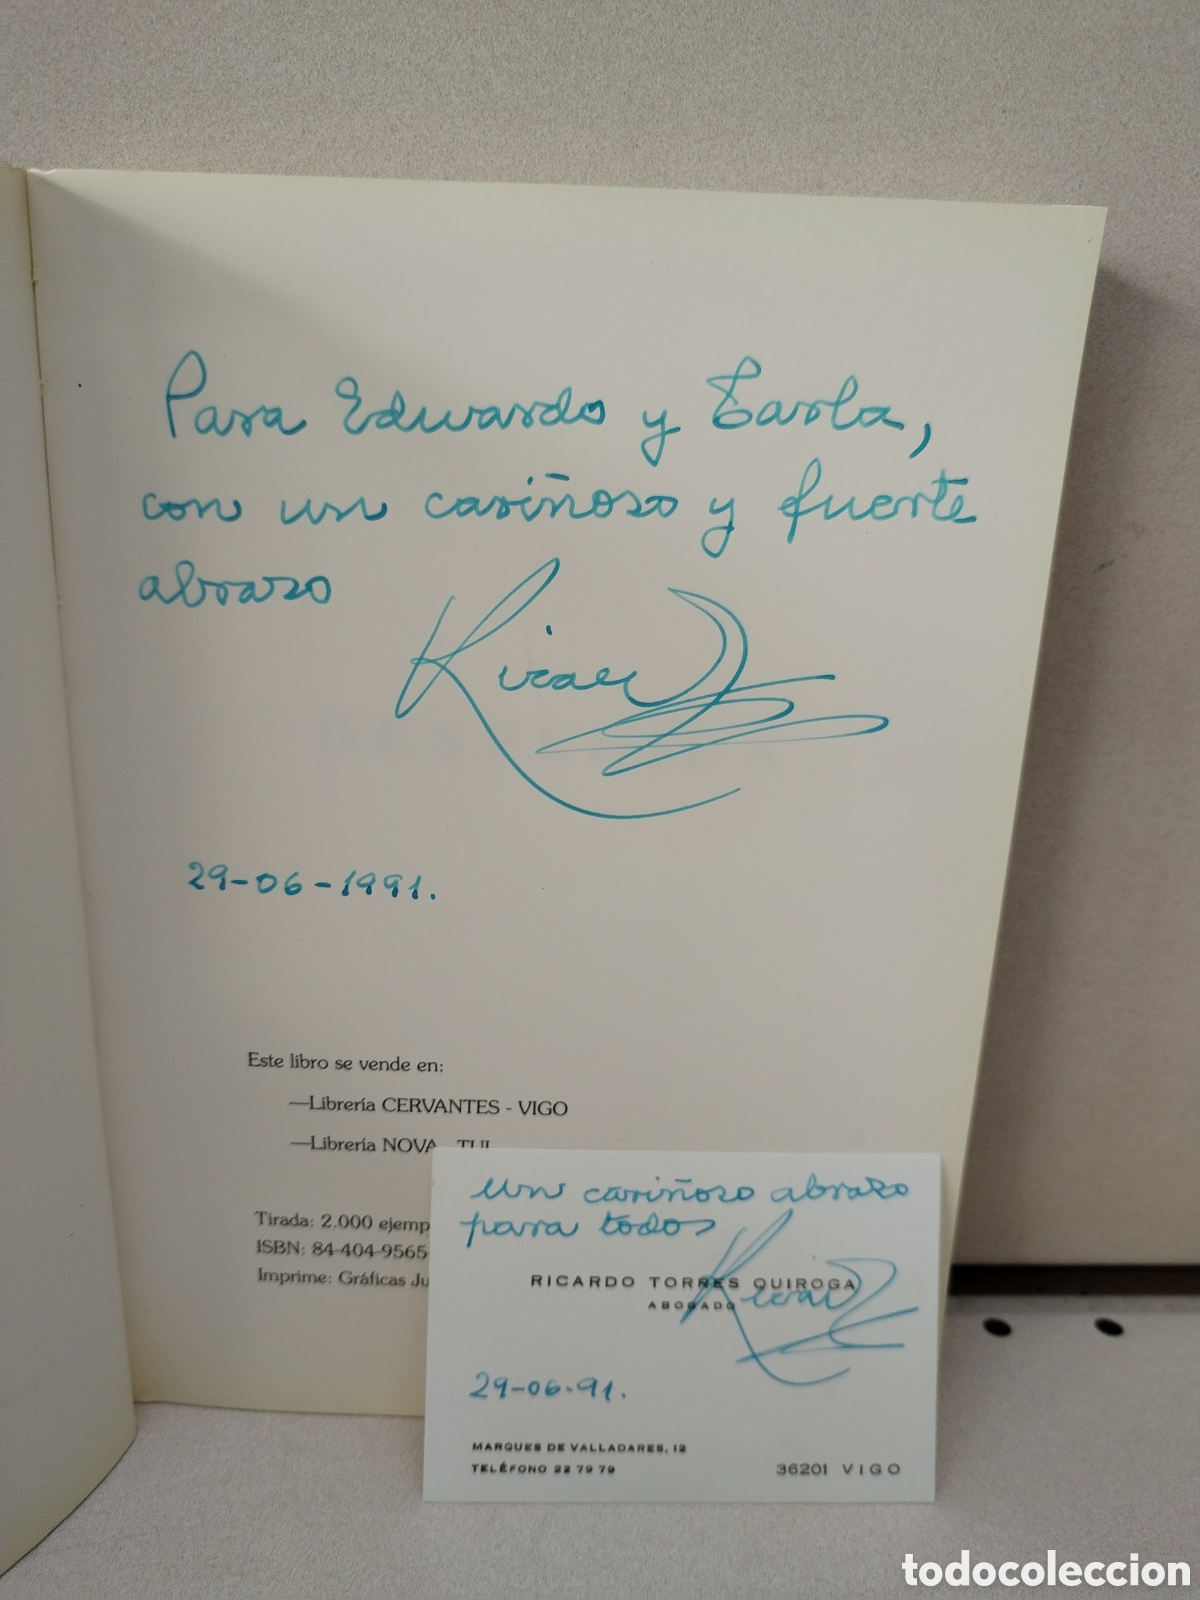 Para Eduardo y Carla,
con un cariñoso y fuerte
abrazo
Ricardo
29-06-1991.
Este libro se vende en:
—Librería CERVANTES - VIGO
—Librería NOVA - TUI
Tirada: 2.000 ejemp
ISBN: 84-404-9565-
Imprime: Gráficas Ju
un cariñoso abrazo
para todos
RICARDO TORRES QUIROGA
ABOGADO
Ricardo
29-06-91.
MARQUES DE VALLADARES, 12
TELÉFONO 22 79 79
36201 VIGO
todocoleccion